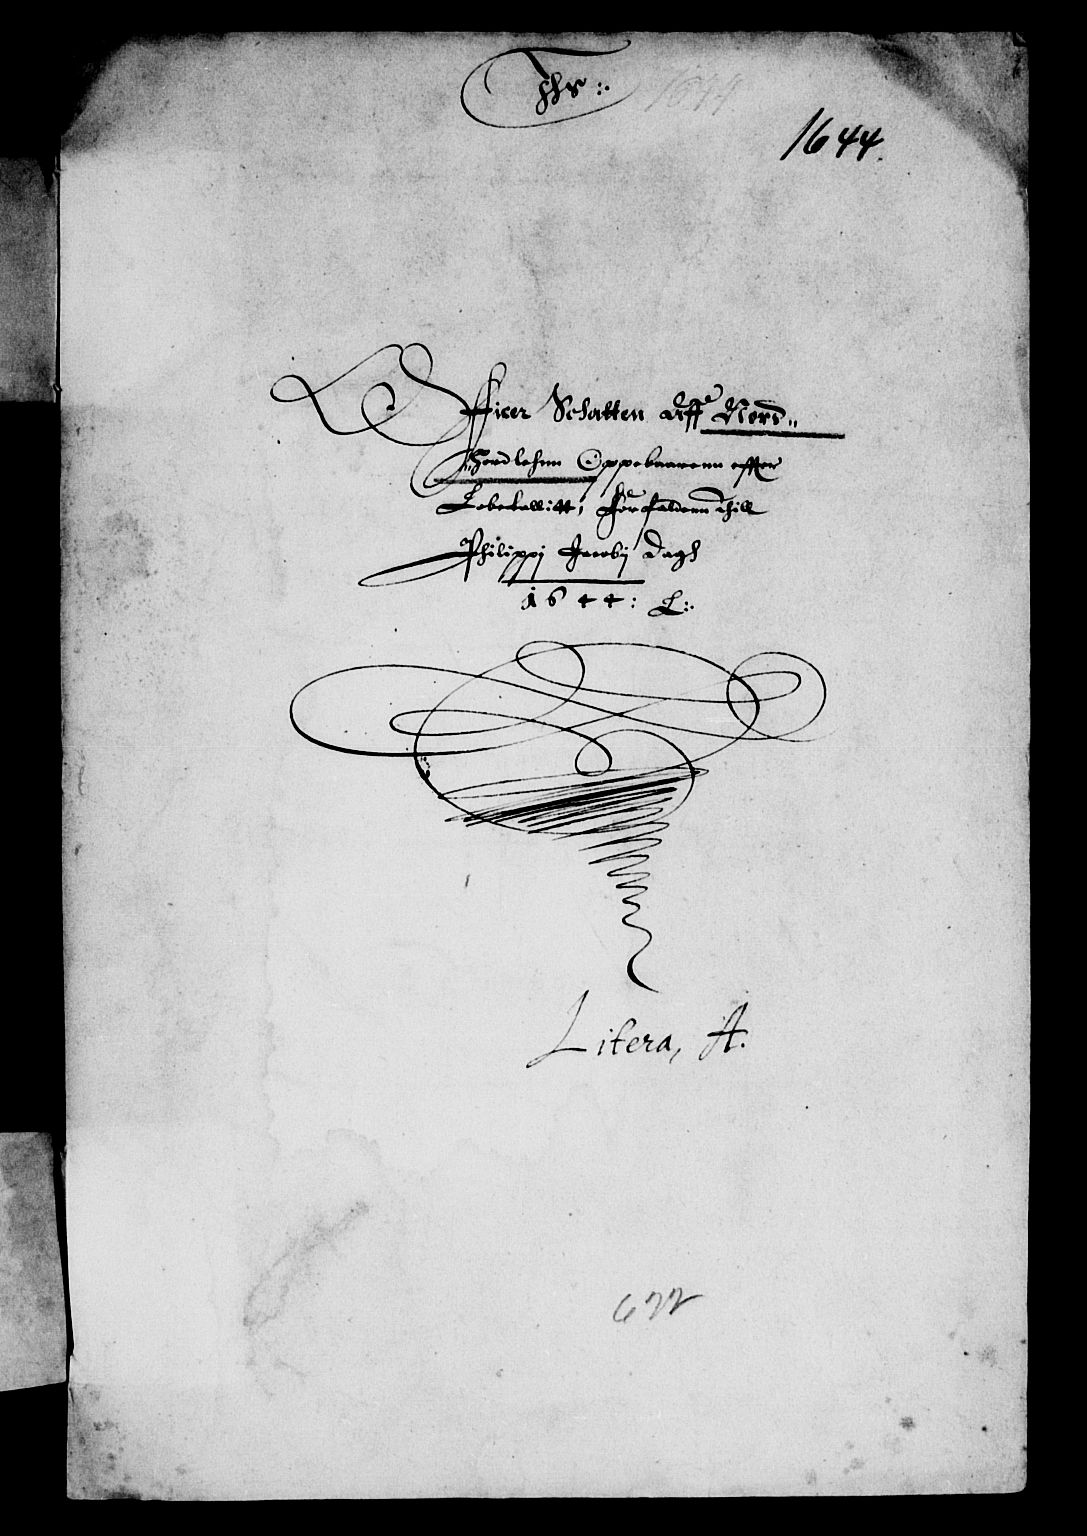 1644
1644.
Officer Schatten Aff Nord„
„Hordlehnn Oppebaarenn effter
forfaldenn thill
Philippi Jacobj Dagh
1644:
Litera, A.
622